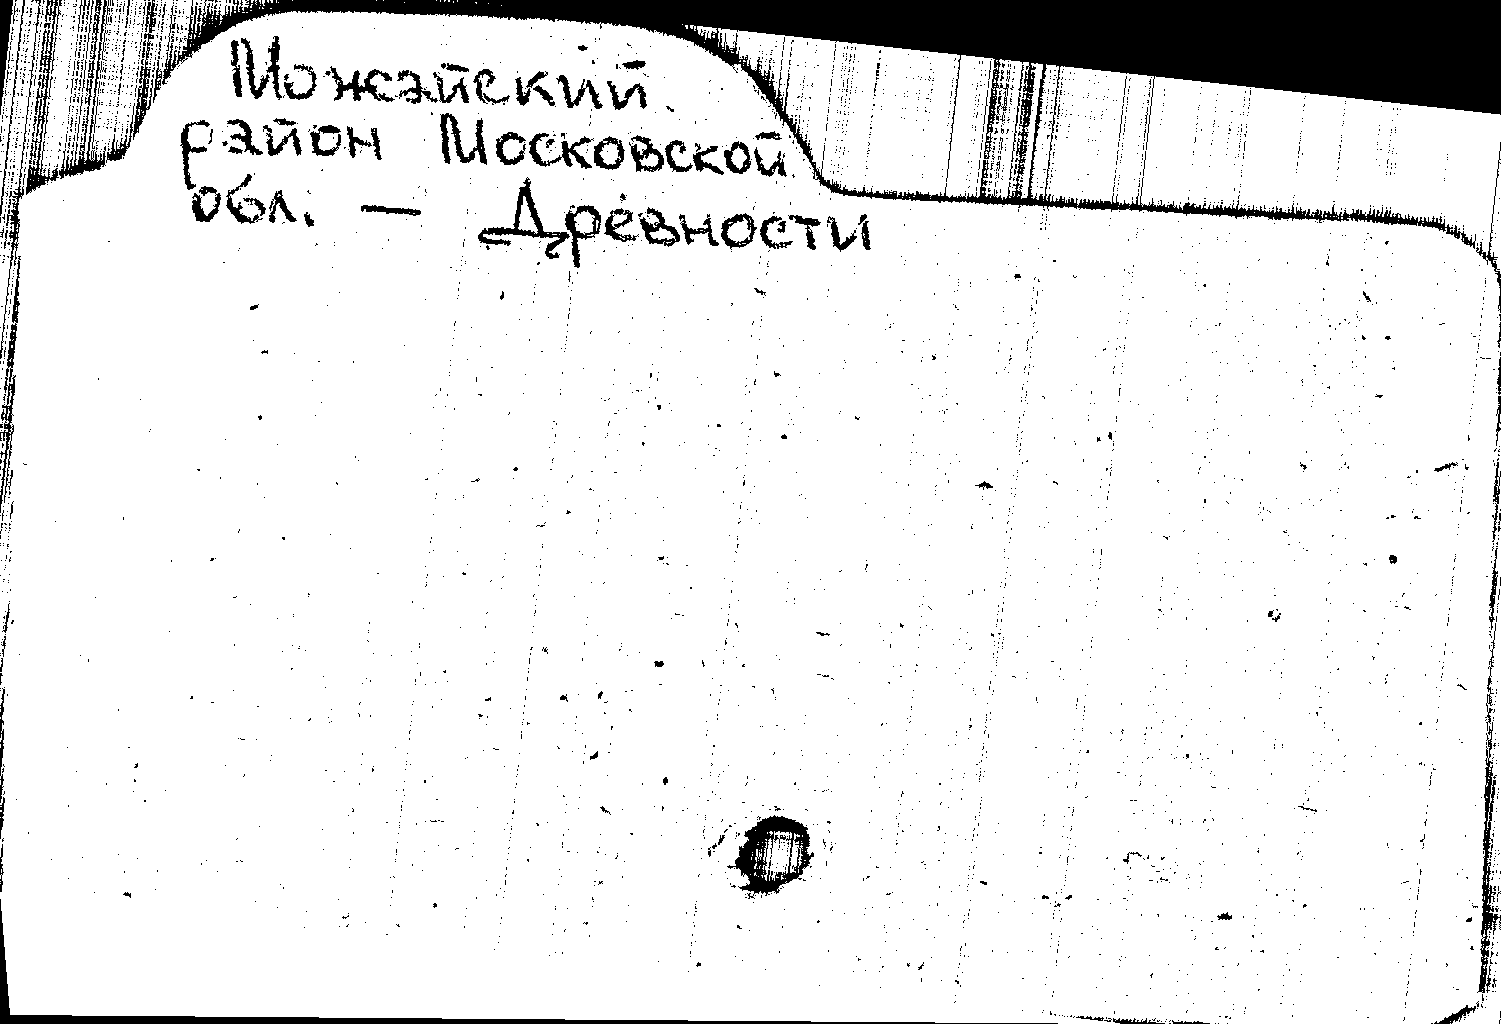 Можайский
район Московской
обл. — Древности